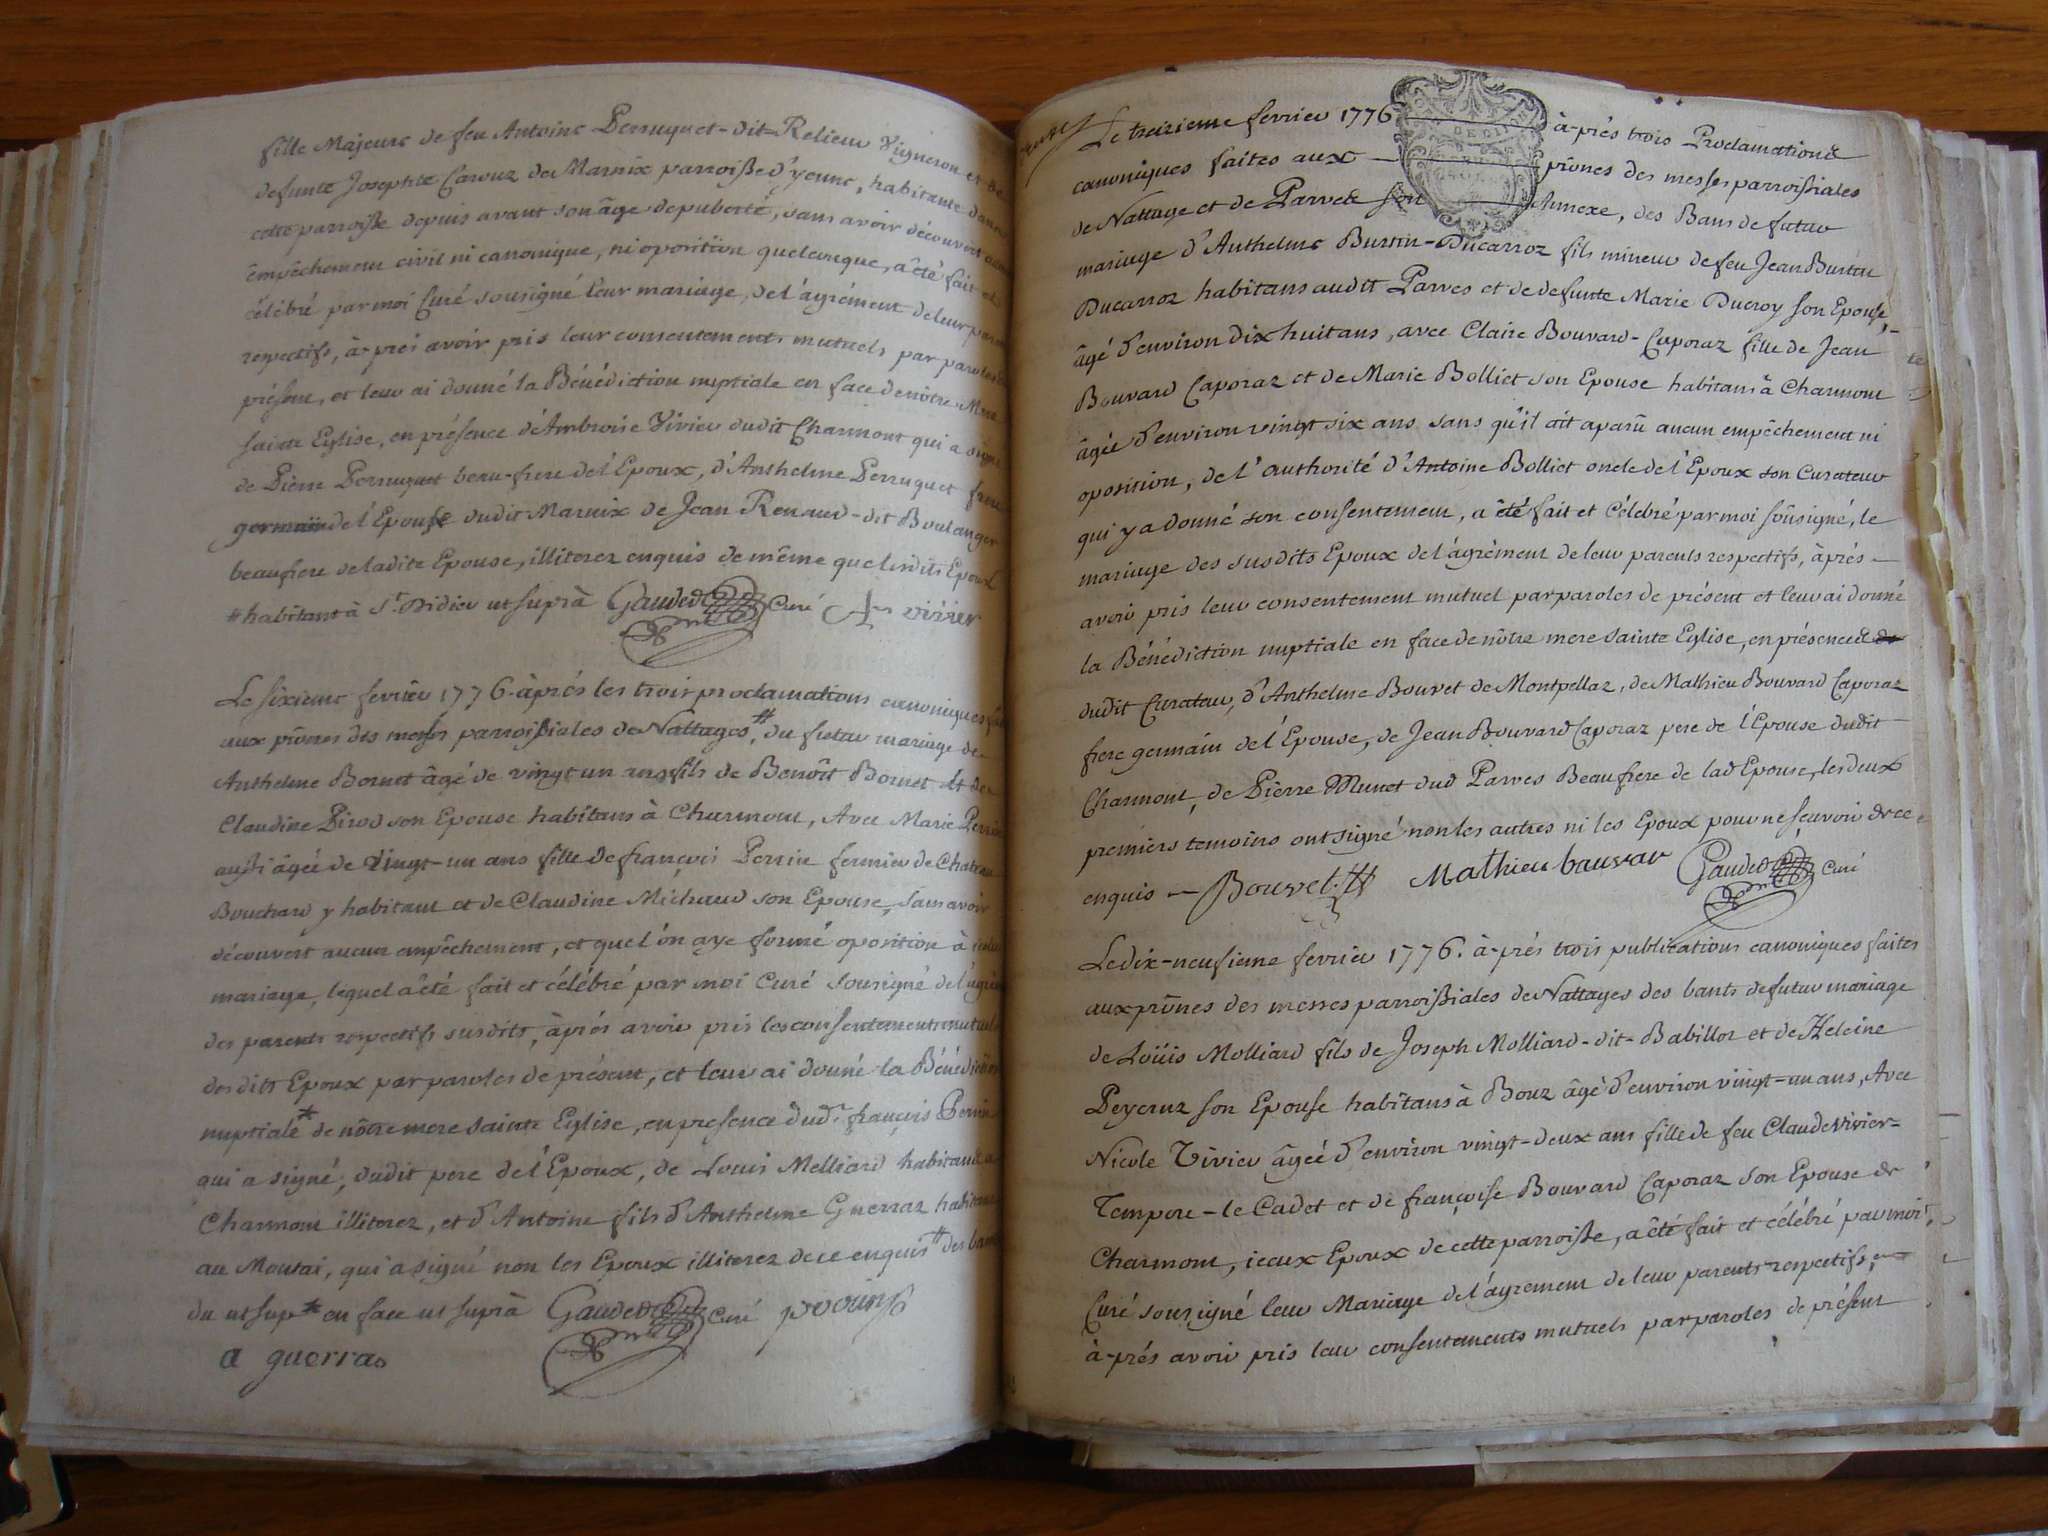 fille Majeure de feu Antoine Perruquet-dit-Relieur Vigneron et de
defunte Josephte Carouz de Marnix parroisse d'yenne, habitante dans
cette parroisse depuis avant son âge de puberté, sans avoir découvert aucun
êmpêchement civil ni canonique, ni oposition quelconque, a êté fait et
célébré par moi Curé sousigné leur mariage, de l'agrément de leur parens
respectifs, à-prés avoir pris leur consentements mutuels par paroles de
présent, et leur ai donné la Bénédiction nuptiale en face de nôtre Mere
sainte Eglise, en présence d'Ambroise Vivier dudit Charmont qui a signé
de Pierre Perruquet beau-frere de l'Epoux, d'Anthelme Perruquet frere
germain de l'Epouse dudit Marnix de Jean Renaud-dit Boulanger
beaufrere de ladite Epouse, illiterez enquis de même que lesdits Epoux
# habitant à St Didier ut suprà Gaudet Curé A vivier
Le sixieme fevrier 1776. àprés les trois proclamations canoniques
aux prônes des messes parroissiales de Nattages #, du futur mariage de
Anthelme Bornet âgé de vingt un ans fils de Benoît Bornet et de
Claudine Pirod son Epouse habitans à Charmont, Avec Marie Perrin
aussi âgée de vingt-un ans fille de françois Perrin fermier de Chateau
Bouchard y habitant et de Claudine Michaud son Epouse, sans avoir
découvert aucun empêchement, et que l'ôn aye formé oposition à
mariage, lequel a êté fait et célébré par moi Curé sousigné de l'agré
des parents respectifs susdits, àprés avoir pris les consentements mutuels
desdits Epoux par paroles de présent, et leur ai donné la Bénédiction
nuptiale * de nôtre mere sainte Eglise, en presence dudt françois Perrin
qui a signé, dudit pere de l'Epoux, de Louis Melliard habitant à
Charmont illiterez, et d'Antoine fils d'Anthelme Guerraz habitant
au Moutai, qui a signé non les Epoux illiterez de ce enquis # des bans
du ut sup * en face ut suprà Gaudet Curé
a guerras
Le treizieme fevrier 1776 à-prés trois Proclamations
canoniques faites aux prônes des messes parroissiales
de Nattage et de Parves son Annexe, des Bans de futur
mariage d'Anthelme Burtin-Ducarroz fils mineur de feu Jean Burtin
Ducarroz habitans audit Parves et de defunte Marie Ducroy son Epouse,
âgé d'environ dix huit ans, avec Claire Bouvard-Caporaz fille de Jean
Bouvard Caporaz et de Marie Bolliet son Epouse habitans à Charmont
âgée d'environ vingt six ans sans qu'il ait aparû aucun empêchement ni
oposition, de l'authorité d'Antoine Bolliet oncle de l'Epoux son Curateur
qui y a donné son consentement, a êté fait et célébré par moi soûsigné, le
mariage des susdits Epoux de l'agrément de leur parents respectifs, àprés
avoir pris leur consentement mutuel par paroles de présent et leur ai donné
la Bénédiction nuptiale en face de nôtre mere sainte Eglise, en présence
dudit Curateur, d'Anthelme Bouvet de Montpellaz, de Mathieu Bouvard Caporaz
frere germain de l'Epouse, de Jean Bouvard Caporaz pere de l'Epouse dudit
Charmont, de Pierre Munet dud Parves Beaufrere de lad Epouse, les deux
premiers temoins ont signé non les autres ni les Epoux pour ne sçavoir de ce
enquis — Bouvet. Mathieu bauvar Gaudet Curé
Le dix-neufieme fevrier 1776. à-prés trois publications canoniques faites
aux prônes des messes parroissiales de Nattages des bants de futur mariage
de Loüis Molliard fils de Joseph Molliard-dit-Babilloz et de Heleine
Peycruz son Epouse habitans à Bouz âgé d'environ vingt-un ans, Avec
Nicole Vivier âgée d'environ vingt-deux ans fille de feu Claude vivier-
Tempore-le Cadet et de françoise Bouvard Caporaz son Epouse de
Charmont, iceux Epoux de cette parroisse, a êté fait et célébré par moi
Curé sousigné leur Mariage de l'agrement de leur parents respectifs,
à-prés avoir pris leur consentements mutuels par paroles de présent